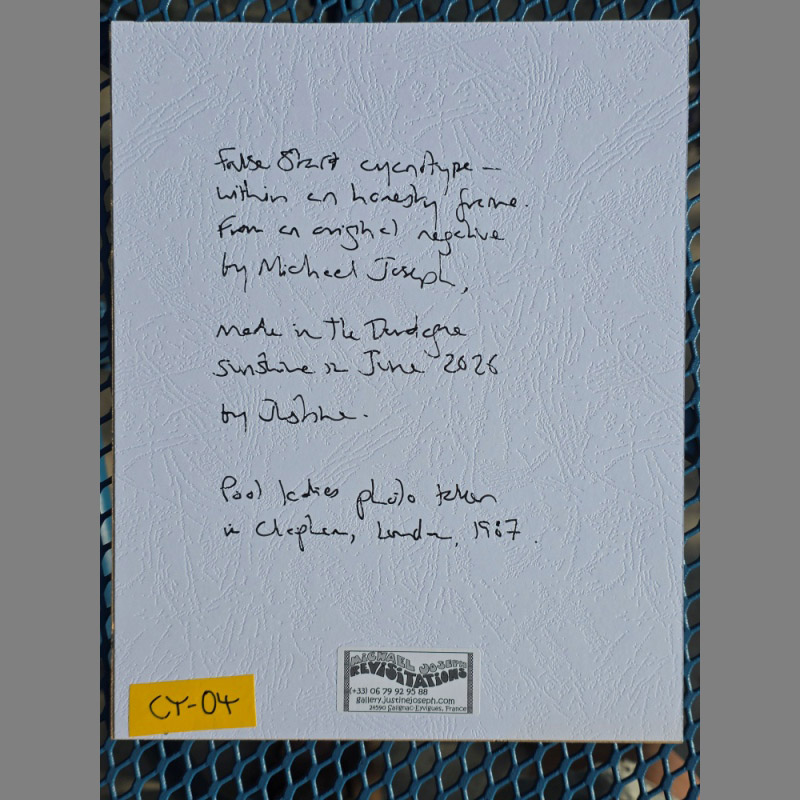 False Start cyanotype –
within an honesty frame.
From an original negative
by Michael Joseph,
made in the Dordogne
sunshine in June 2026
by Justine.
Pool ladies photo taken
in Clapham, London, 1987.
MICHAEL JOSEPH
REVISITATIONS
(+33) 06 79 92 95 88
gallery.justinejoseph.com
24590 Salignac Eyvigues, France
CY-04